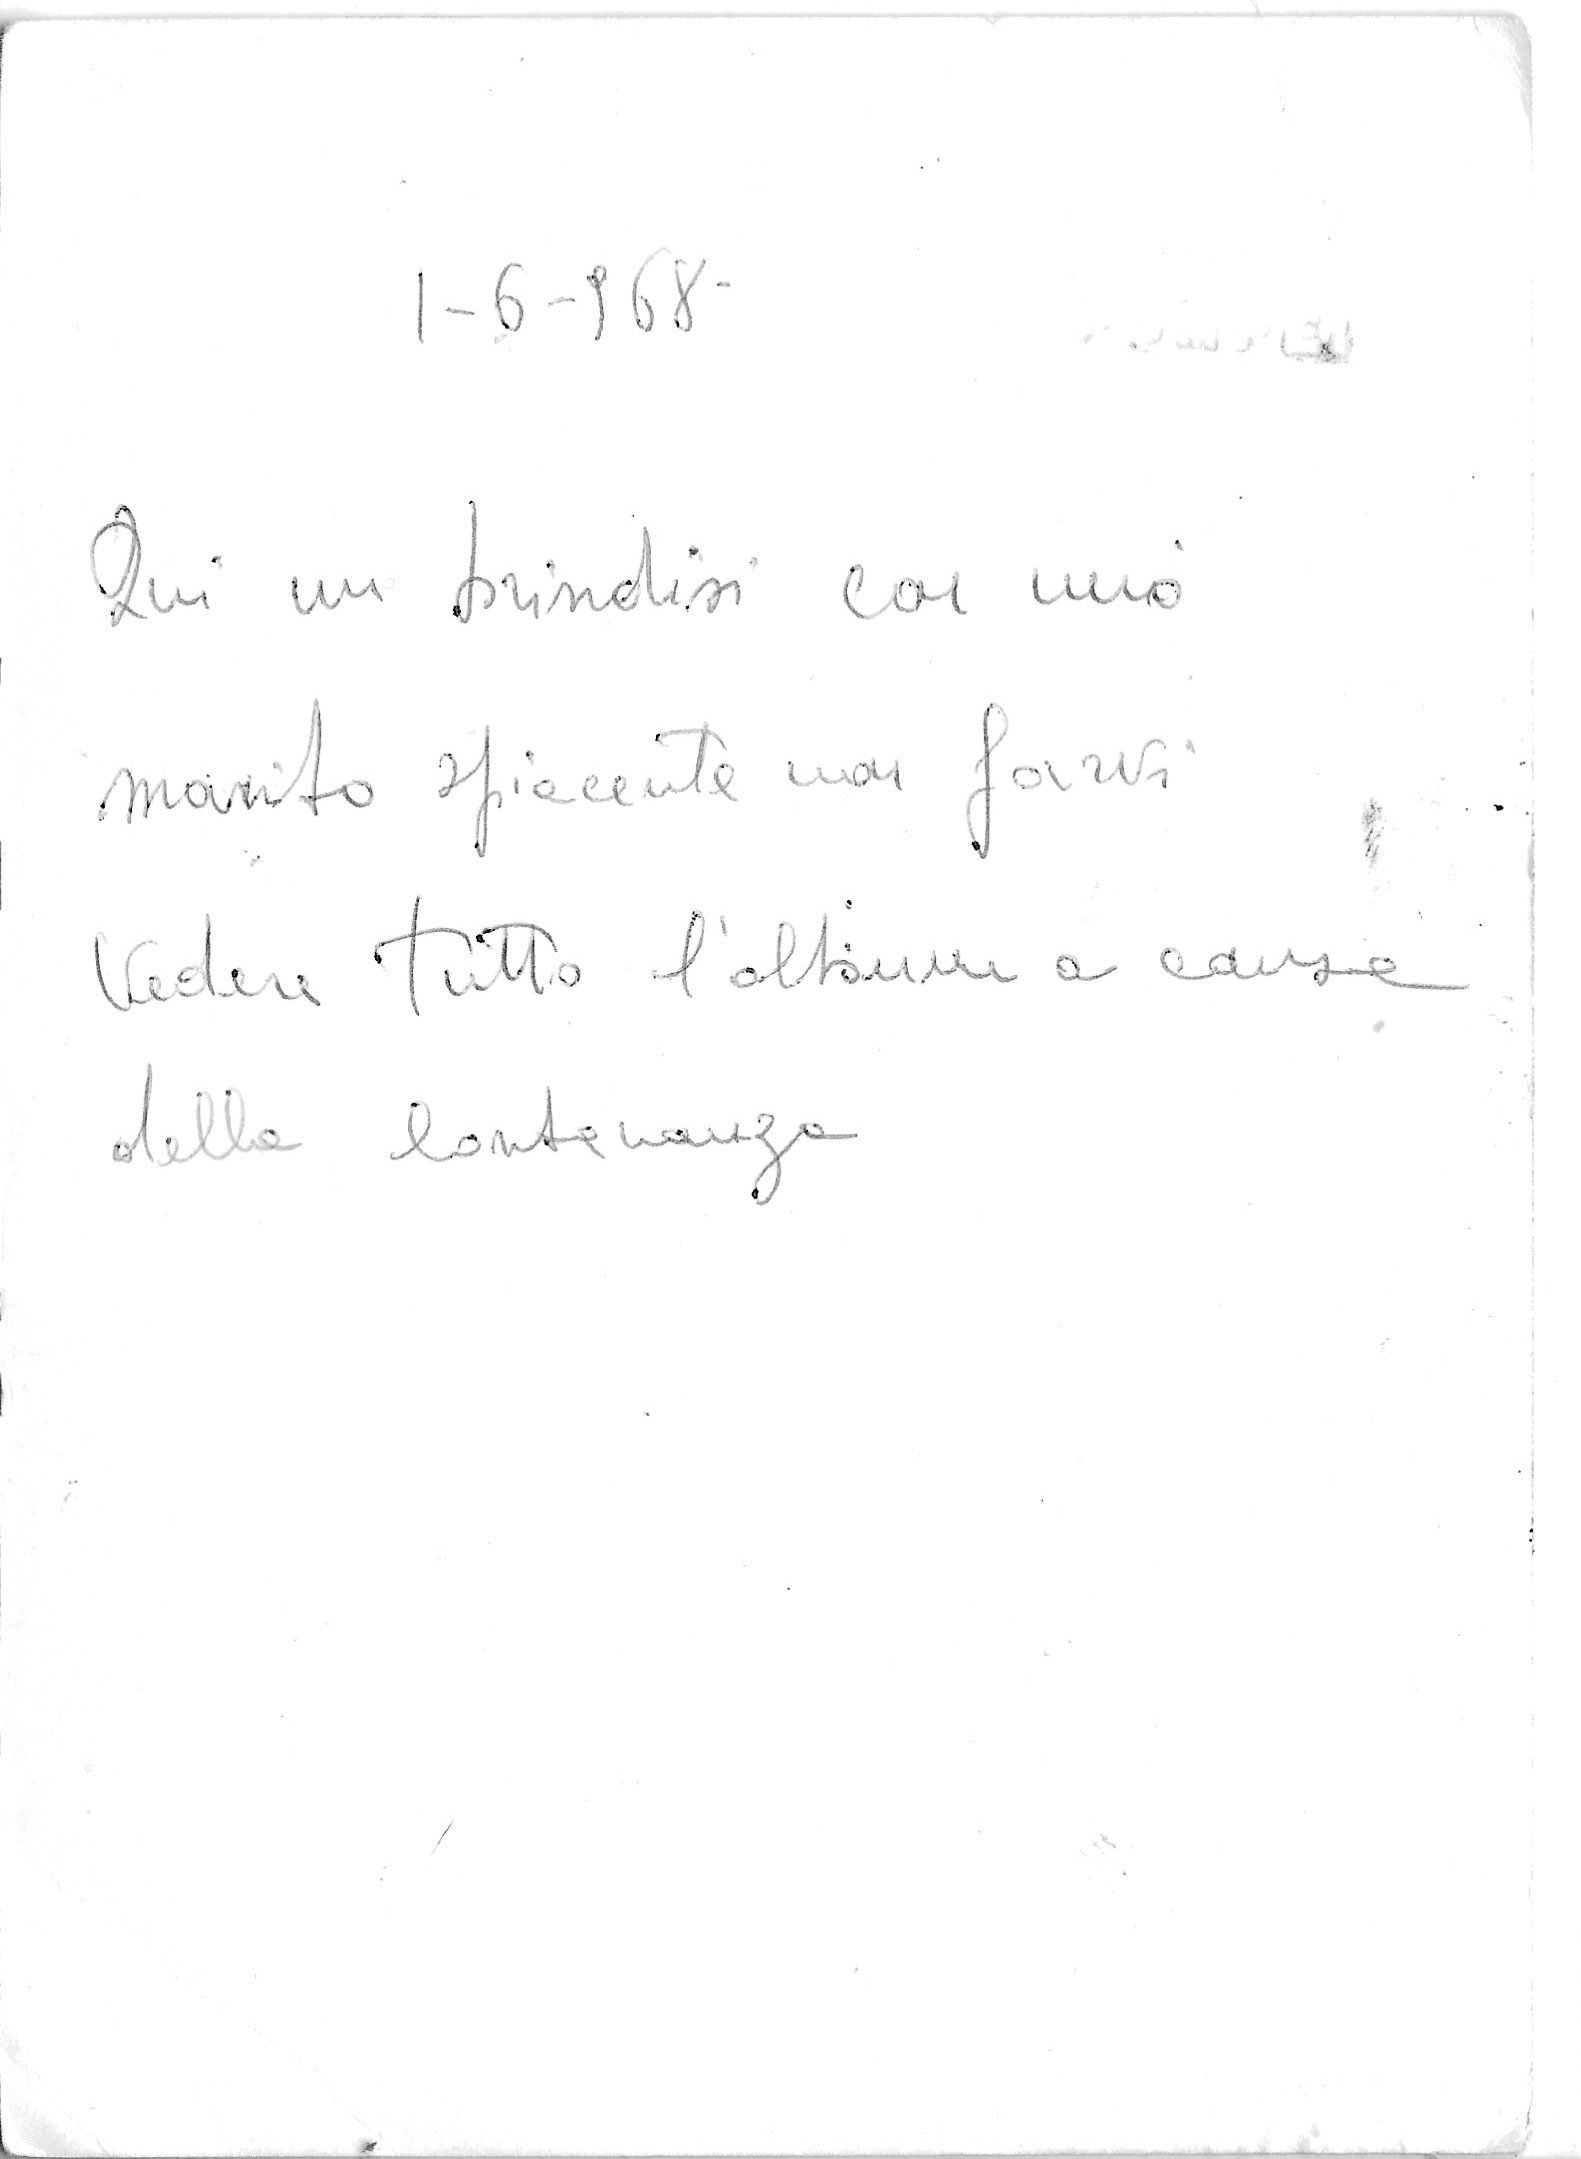 1-6-968-
Qui un brindisi con mio
marito spiacente non farvi
Vedere tutto l'album a causa
della lontananza